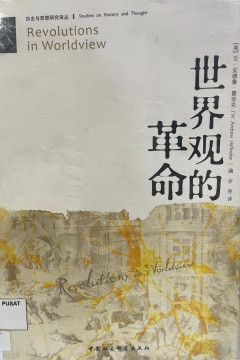 历史与思想研究译丛 | Studies on History and Thought
Revolutions
in Worldview
世界观的
革命
[美] W. 安德鲁·霍菲克 (W. Andrew Hoffecker) 编 余亮 译
Revolutions in Worldview
PUSAT
中国社会科学出版社